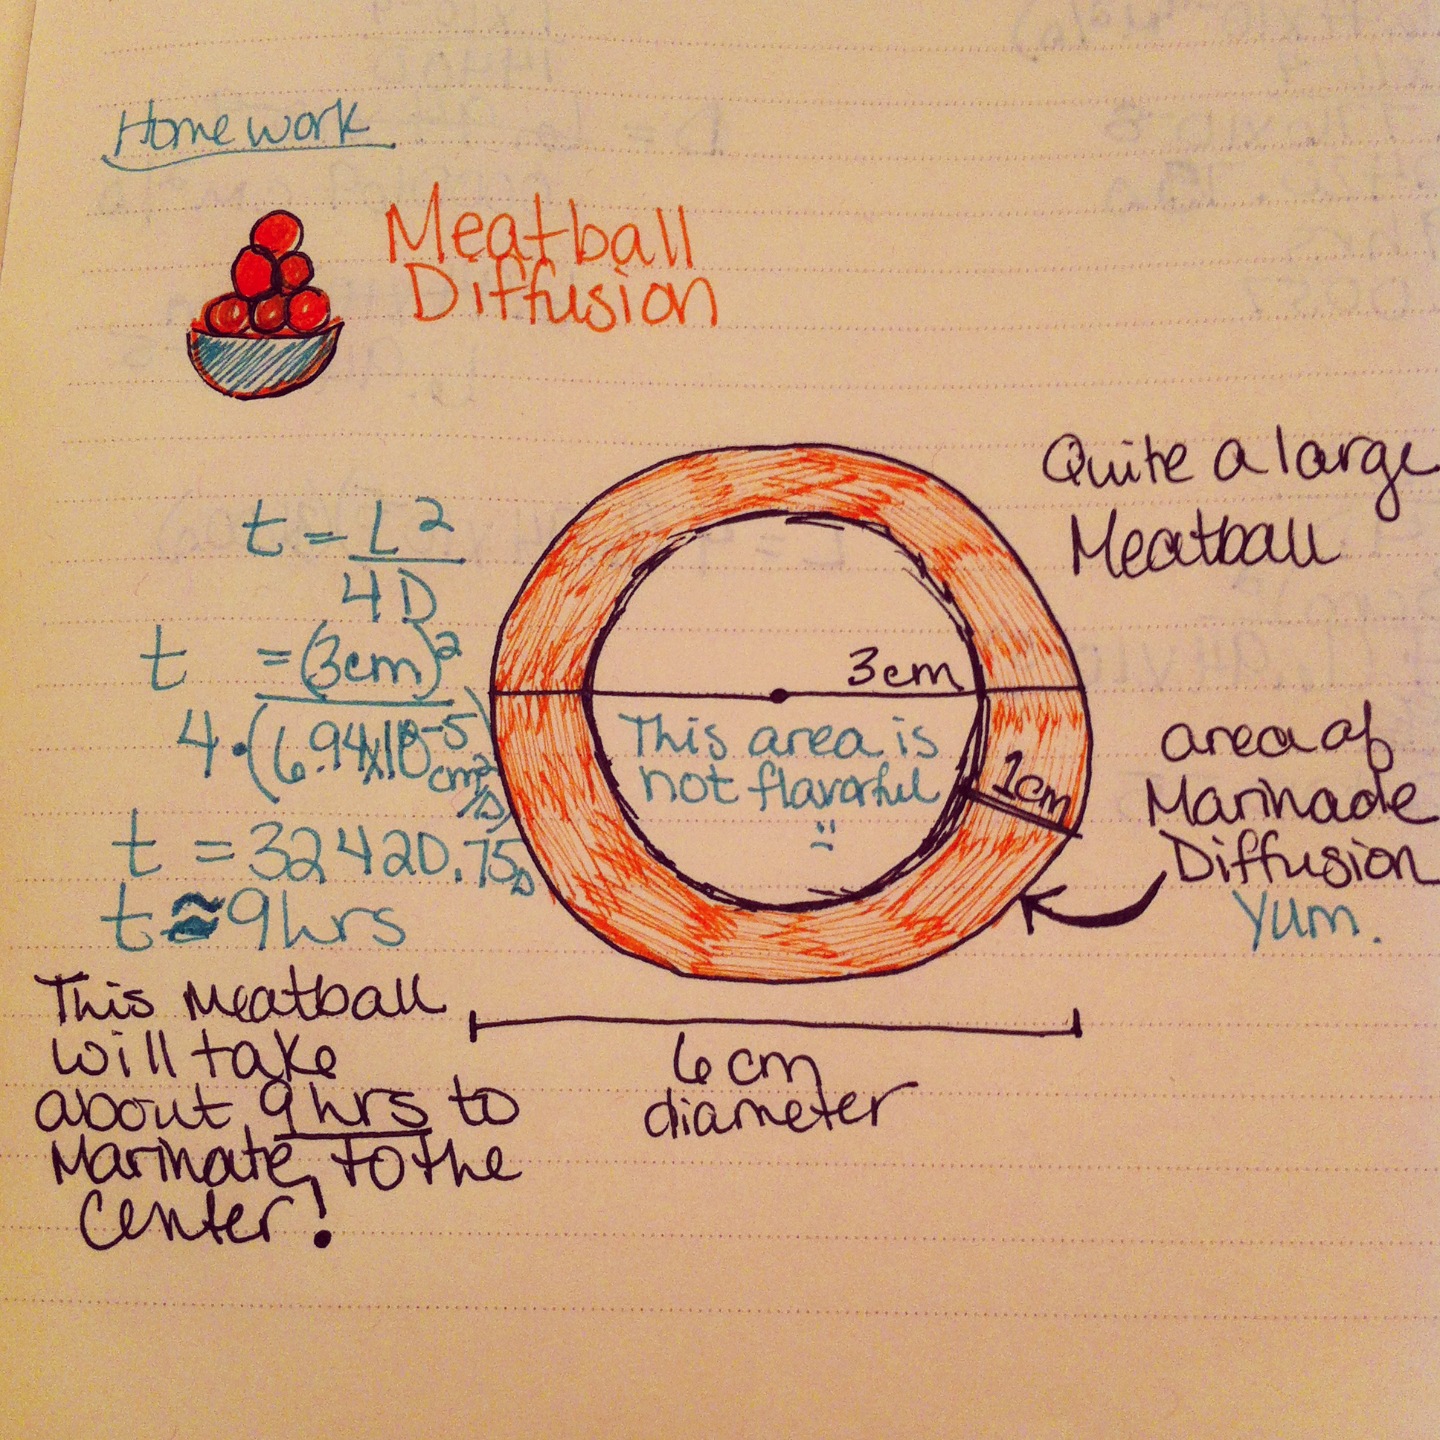 Homework
Meatball
Diffusion
Quite a large
Meatball
t = L²
4D
t = (3cm)²
4·(6.94x10⁻⁵ cm²/s)
t = 32420.75s
t ≈ 9hrs
3cm
This area is
not flavorful
1cm
area of
Marinade
Diffusion
Yum.
This Meatball
will take
about 9hrs to
Marinate, to the
Center!
6cm
diameter